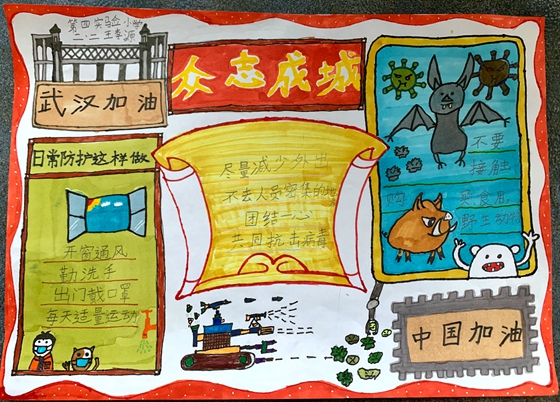 第四实验小学
二.二 王奉源
众志成城
武汉加油
日常防护这样做
开窗通风
勤洗手
出门戴口罩
每天适量运动
尽量减少外出
不去人员密集的地
团结一心
共同抗击病毒
不要
接触
购
买食用
野生动物
中国加油